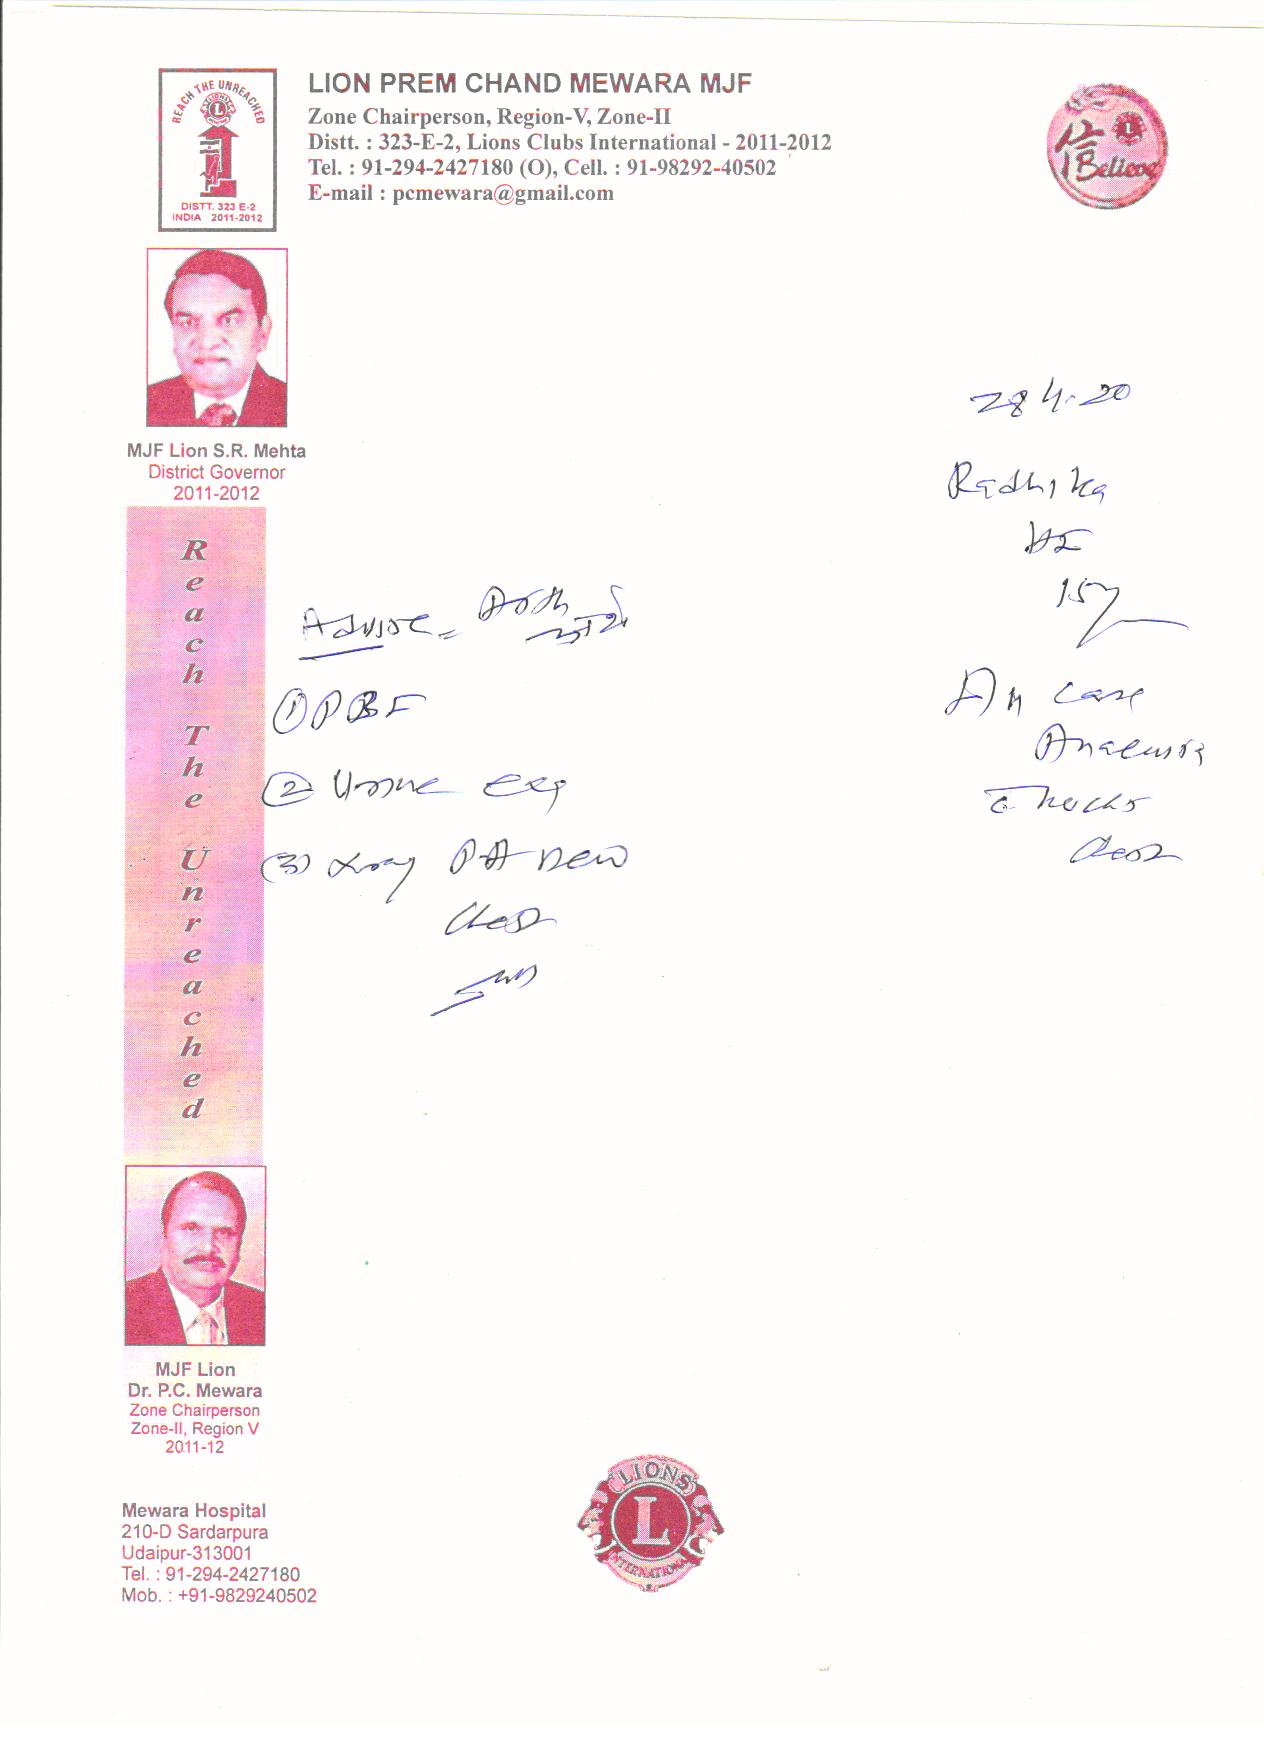 REACH THE UNREACHED
LIONS
L
DISTT. 323 E-2
INDIA 2011-2012
LION PREM CHAND MEWARA MJF
Zone Chairperson, Region-V, Zone-II
Distt. : 323-E-2, Lions Clubs International - 2011-2012
Tel. : 91-294-2427180 (O), Cell. : 91-98292-40502
E-mail : pcmewara@gmail.com
信
L
I Believe
MJF Lion S.R. Mehta
District Governor
2011-2012
28 4.20
Radhika
15y
Case
Advise
① PBF
② Urine
(3) Xray PA new
Chest
Reach The Unreached
MJF Lion
Dr. P.C. Mewara
Zone Chairperson
Zone-II, Region V
2011-12
Mewara Hospital
210-D Sardarpura
Udaipur-313001
Tel. : 91-294-2427180
Mob. : +91-9829240502
LIONS
L
INTERNATIONAL